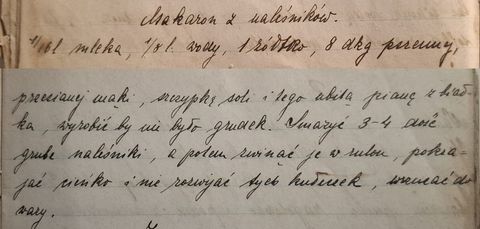 Makaron z naliśników.
1/16 l mleka, 1/8 l. wody, 1 żółtko, 8 dkg pszennej,
przesianej mąki, szczyptę soli i tęgo ubitą pianę z biał-
ka, wyrobić by nie było grudek. Smażyć 3-4 dość
grube naliśniki, a potem zwinąć je w rulon, pokra-
jać cienko i nie rozwijać tych kółeczek, wrzucać do
wazy.